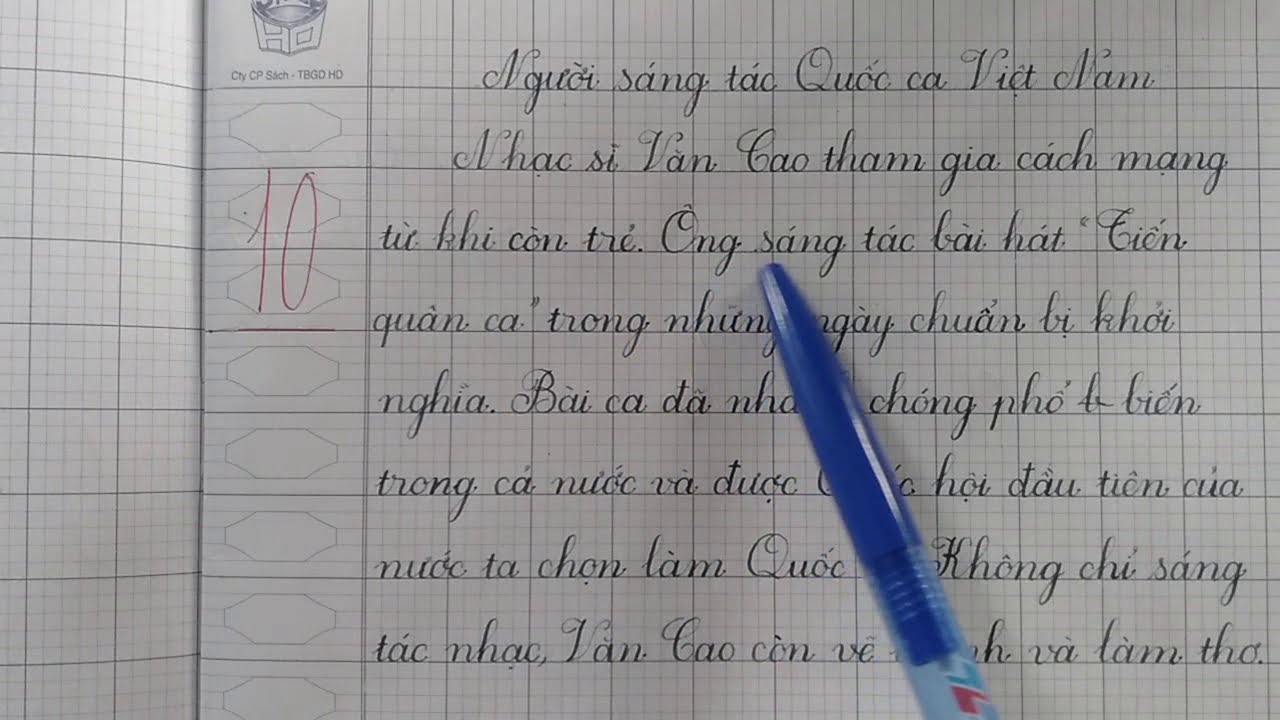 Cty CP Sách - TBGD HD
Người sáng tác Quốc ca Việt Nam
Nhạc sĩ Văn Cao tham gia cách mạng
10
từ khi còn trẻ. Ông sáng tác bài hát "Tiến
quân ca" trong những ngày chuẩn bị khởi
nghĩa. Bài ca đã chóng phổ biến
trong cả nước và được hội đầu tiên của
nước ta chọn làm Quốc Không chỉ sáng
tác nhạc, Văn Cao còn vẽ và làm thơ.